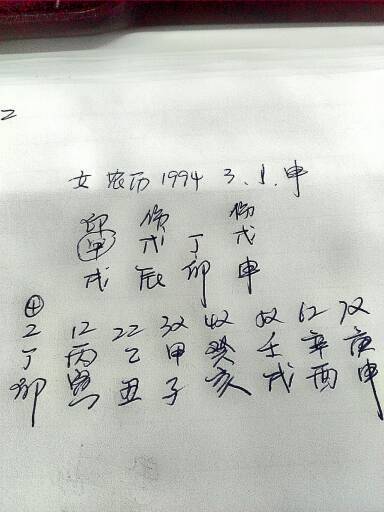 2
女 农历 1994 3. 1. 申
印 伤 伤
甲 戊 丁 戊
戌 辰 卯 申
④
2 12 22 32 42 52 62 72
丁 丙 乙 甲 癸 壬 辛 庚
卯 寅 丑 子 亥 戌 酉 申